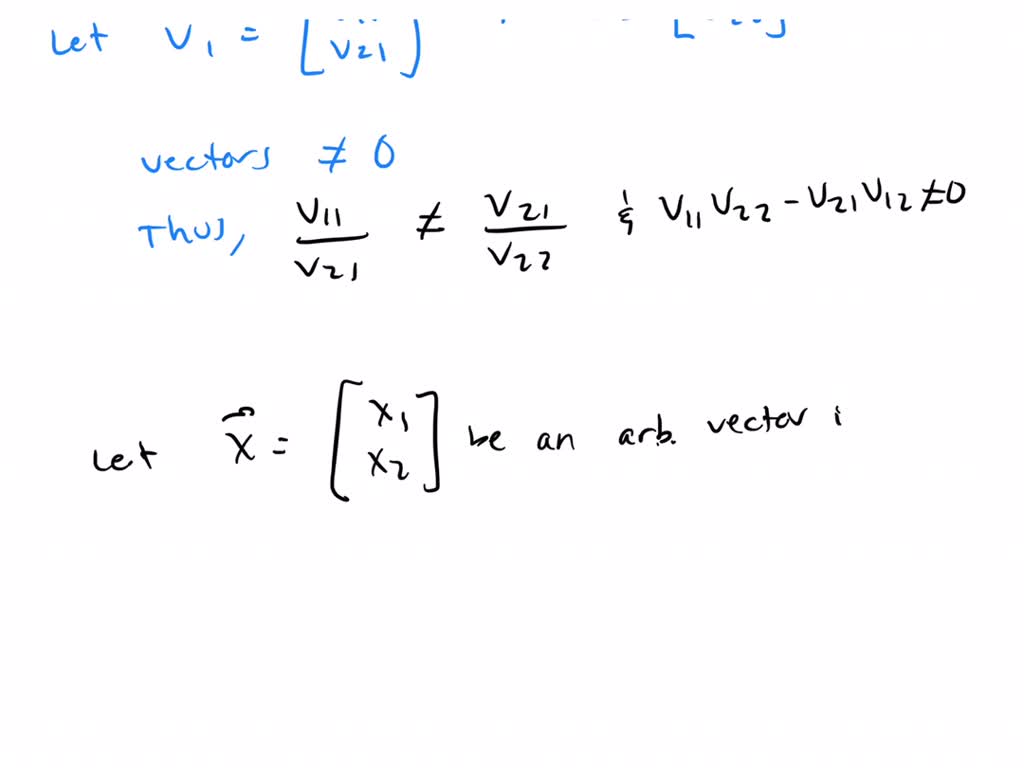 Let V1 = [ V21 ]
vectors ≠ 0
Thus, V11/V21 ≠ V21/V22 & V11 V22 - V21 V12 ≠ 0
Let x⃗ = [ x1 x2 ] be an arb. vector i